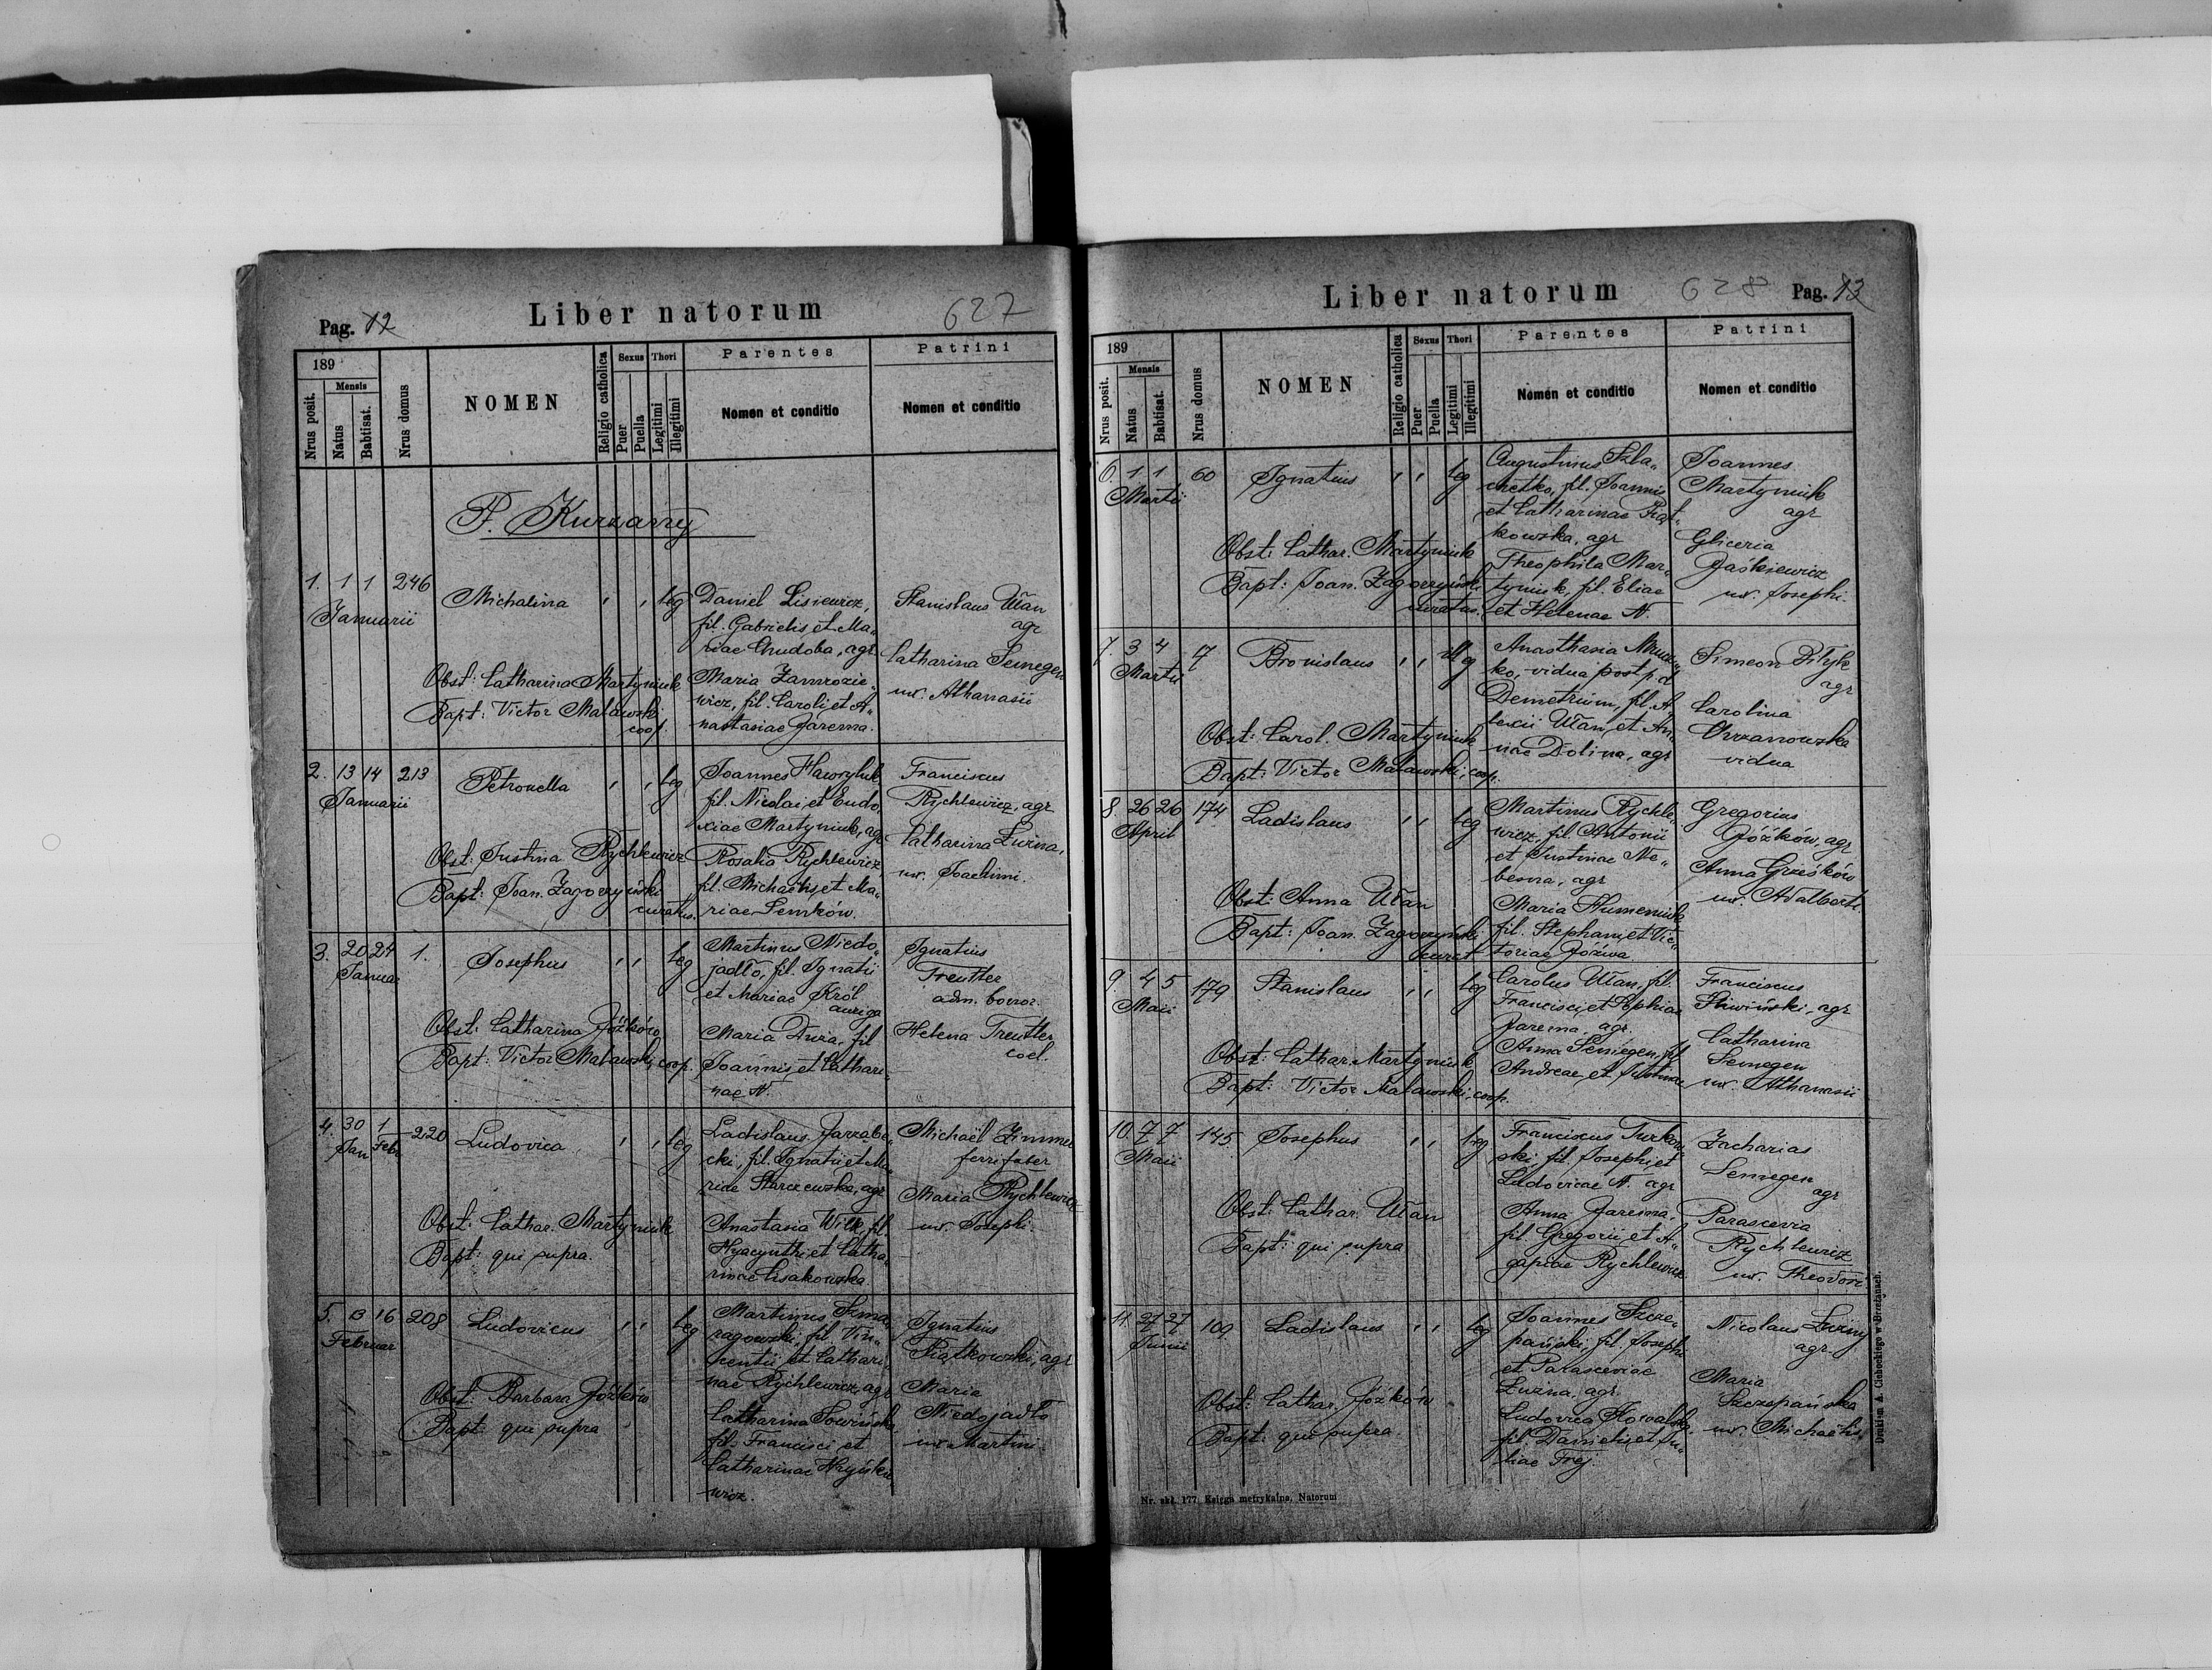 Liber natorum
627
Pag. 12
189
Nrus posit.
Mensis
Natus
Babtisat.
Nrus domus
NOMEN
Religio catholica
Sexus
Puer
Puella
Thori
Legitimi
Illegitimi
Parentes
Nomen et conditio
Patrini
Nomen et conditio
P. Kurzany
1. 1 1 246
Januarii
Michalina
leg
Daniel Lisiewicz,
fil. Gabrielis et Ma„
riae Chudoba, agr.
Maria Zamrozie„
wicz, fil. Caroli et A„
nastasiae Jarema.
Stanislaus Ułan
agr
Catharina Semegen
ux. Athanasii
Obst: Catharina Martyniuk
Bapt: Victor Malawski
coop.
2. 13 14 213
Januarii
Petronella
leg
Joannes Hawryluk
fil. Nicolai et Eudo„
xiae Martyniuk, agr
Rosalia Rychlewicz
fil. Michaelis et Ma„
riae Semków.
Franciscus
Rychlewicz, agr
Catharina Luzna,
ux. Joachimi.
Obst: Justina Rychlewicz
Bapt: Joan. Zagorzyński
curatus.
3. 20 24 1.
Januar
Josephus
leg
Martinus Niedo„
jadło, fil. Ignatii
et Mariae Król
auriga
Maria Duża, fil
Joannis et Cathari„
nae N.
Ignatius
Treutler
adm. bonor.
Helena Treutler
coel.
Obst: Catharina Jóźków
Bapt: Victor Malawski, coop.
4. 30 1 220
Jan Febr
Ludovica
leg
Ladislaus Jarzabe„
cki, fil. Ignatii et Ma„
riae Starczewska, agr
Anastasia Wilk, fil.
Hyacynthi et Catha„
rinae Lisakowska.
Michaël Zimmer
ferrifater
Maria Rychlewicz
ux. Josephi.
Obst: Cathar. Martyniuk
Bapt: qui supra.
5. 13 16 208
Februar
Ludovicus
leg
Martinus Szma„
ragowski, fil. Vin„
centii et Cathari„
nae Rychlewicz, agr
Catharina Sowińska,
fil. Francisci et
Catharinae Hryńkie„
wicz.
Ignatius
Piątkowski, agr
Maria
Niedojadło
ux. Martini.
Obst: Barbara Jóźków
Bapt: qui supra
Liber natorum
628
Pag. 13
189
Nrus posit.
Mensis
Natus
Babtisat.
Nrus domus
NOMEN
Religio catholica
Sexus
Puer
Puella
Thori
Legitimi
Illegitimi
Parentes
Nomen et conditio
Patrini
Nomen et conditio
6. 1 1 60
Martii
Ignatius
leg
Augustinus Szla„
chetko, fil. Joannis
et Catharinae Piąt„
kowska, agr
Theophila Mar„
tyniuk, fil. Eliae
et Helenae N.
Joannes
Martyniuk
agr
Gliceria
Jaśkiewicz
ux. Josephi.
Obst: Cathar. Martyniuk
Bapt: Joan. Zagorzyński
curatus.
7. 3 4 7
Martii
Bronislaus
illeg
Anasthasia
ko, vidua post p. d.
Demetrium, fil. A„
lexii Ułan, et An„
nae Dolina, agr
Simeon Bityk
agr
Carolina
Chrzanowska
vidua
Obst: Carol. Martyniuk
Bapt: Victor Malawski, coop.
8. 26 26 174
April
Ladislaus
leg
Martinus Rychle„
wicz, fil. Antonii
et Justinae Ne„
besna, agr
Maria Humeniuk
fil. Stephani et Vic„
toriae Jóźwa
Gregorius
Jóźków, agr
Anna Grześków
ux. Adalberti.
Obst: Anna Ułan
Bapt: Joan. Zagorzyński
curat
9. 4 5 179
Maii
Stanislaus
leg
Carolus Ułan, fil.
Francisci et Sophiae
Jarema, agr.
Anna Semegen, fil.
Andreae et Justinae
Franciscus
Śliwiński, agr
Catharina
Semegen
ux. Athanasii
Obst: Cathar. Martyniuk
Bapt: Victor Malawski, coop.
10. 7 7 145
Maii
Josephus
leg
Franciscus Turkow„
ski, fil. Josephi et
Ludovicae N. agr
Anna Jarema,
fil. Gregorii et A„
gapiae Rychlewicz
Zacharias
Semegen
agr
Parascevia
Rychlewicz
ux. Theodori
Obst: Cathar. Ułan
Bapt: qui supra
11. 27 27 109
Junii
Ladislaus
leg
Joannes Szcze„
pański, fil. Josephi
et Parasceviae
Luzna, agr.
Ludovica Kowalska,
fil. Danielis et Ju„
liae Frej.
Nicolaus Luzny
agr.
Maria
Szczepańska
ux. Michaelis.
Obst: Cathar. Jóźków
Bapt: qui supra.
Nr. skł. 177. Księga metrykalna. Natorum
Drukiem A. Cichockiego w Brzeżanach.